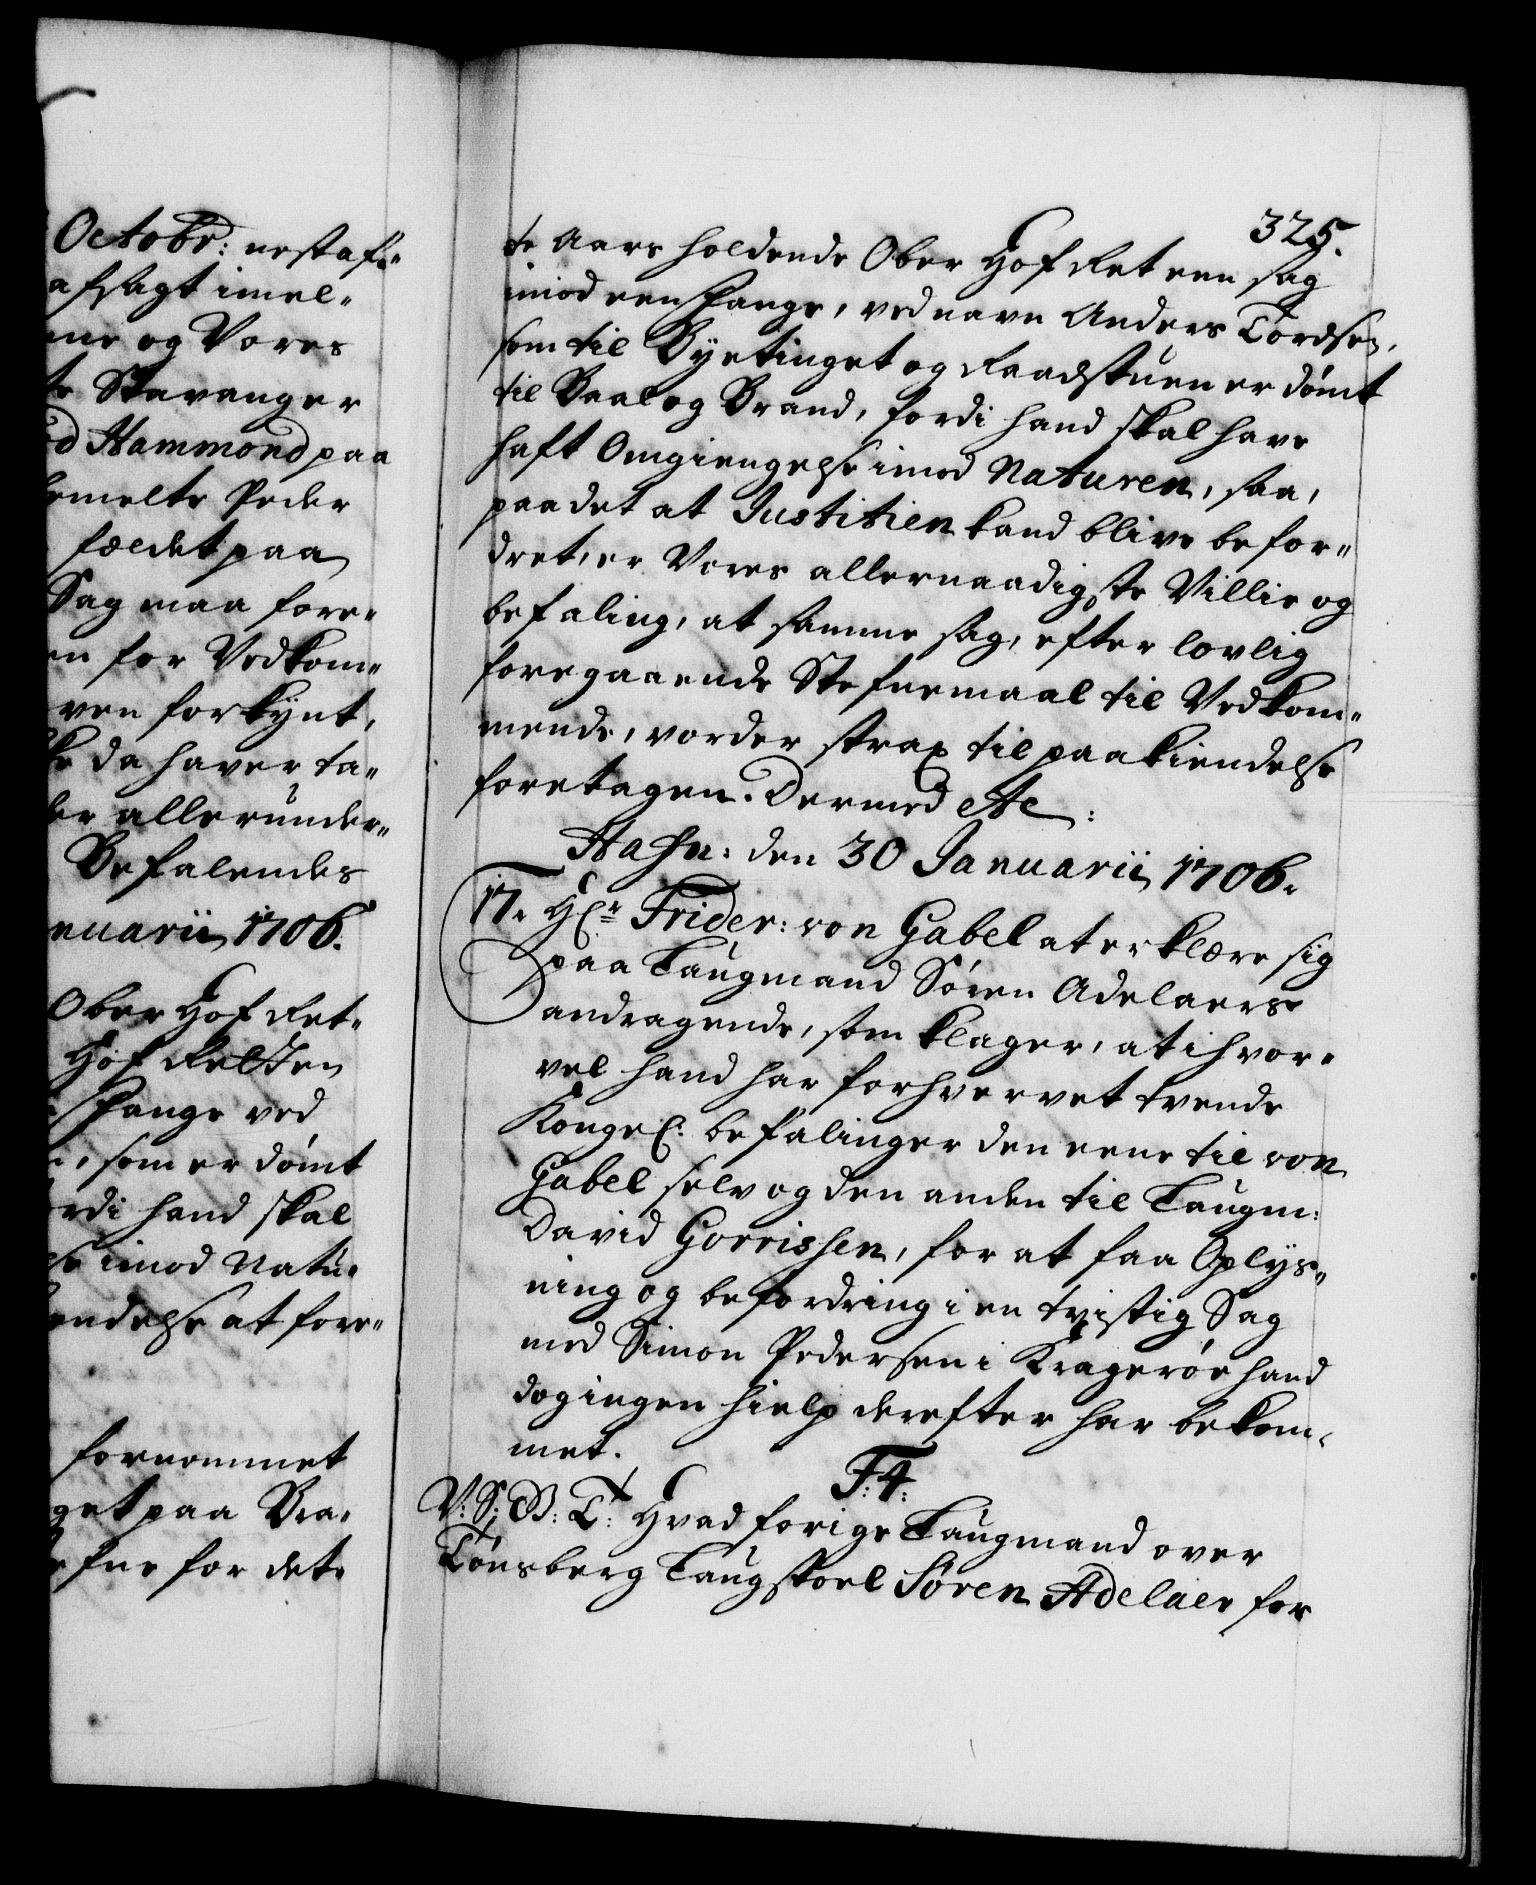 Octobr: nest af„
afsagt imel„
nne og Vores
te Stavanger
d Hammond paa
bemelte Peder
fældet paa
Sag maa fore„
en for Vedkom„
ven forkynt,
ke da haver ta„
der allerunder„
Befalendes
nuarii 1706.
Ober Hof Ret„
Hof Retten
Fange ved
, som er dømt
rdi hand skal
se imod Natu„
endelse at fore„
fornommet
get paa Bra„
efne for det„
325.
te Aars holdende Ober Hof Ret een sag
imod een Fange, ved navn Anders Tordsen,
som til Byetinget og Raadstuen er dømt
til Baal og Brand, fordi hand skal have
haft Omgiengelse imod Naturen, saa,
paa det at Justitien kand blive befor„
dret, er Vores allernaadigste Villie og
befaling, at samme sag, efter lovlig
foregaaende Stefnemaal til Vedkom„
mende, vorder strax til paakiendelse
foretagen. Dermed etc:
Hafn: den 30 Januarii 1706.
17. Hr Frider: von Gabel at erklære sig
paa Laugmand Søren Adelaers
andragende, som klager, at ihvor„
vel hand har forhvervet tvende
Kongel: befalinger den eene til von
Gabel selv og den anden til Laugm:
David Gorrissen, for at faa Oplys„
ning og befordring i en tvistig Sag
med Simon Pedersen i Kragerøe hand
dog ingen hielp derefter har bekom„
met.
F: 4:
V: S: G: T: Hvad forige Laugmand over
Tønsberg Laugstoel Søren Adelaer for